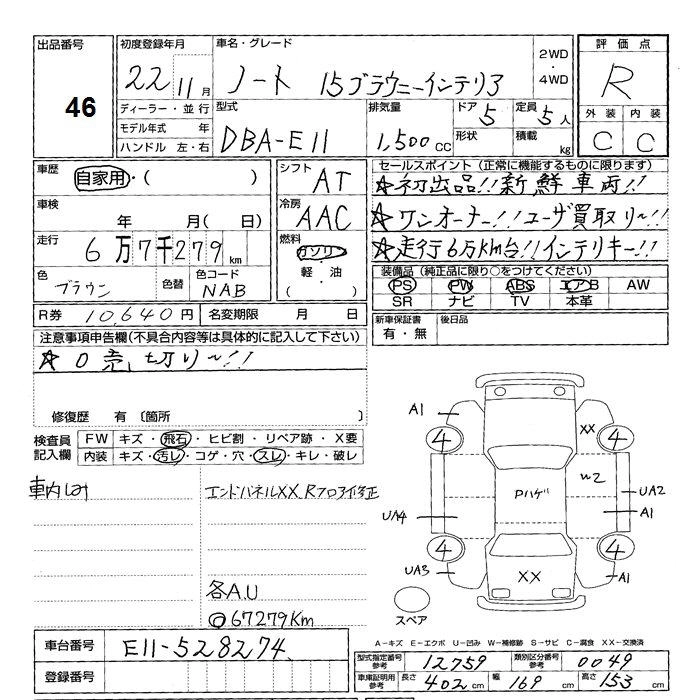 出品番号
46
初度登録年月
22 11月
車名・グレード
ノート 15ブラウニーインテリア
2WD
・
4WD
評価点
R
外装 内装
C C
ディーラー・並行
モデル年式 年
ハンドル 左・右
型式
DBA-E11
排気量
1,500cc
ドア 5
形状
定員 5人
積載 kg
車歴
自家用・( )
車検
年 月( 日)
走行
6万7千279km
色
ブラウン
色替
色コード
NAB
シフト
AT
冷房
AAC
燃料
ガソリン
軽・油
( )
セールスポイント(正常に機能するものに限ります)
☆初出品!!新鮮車両!!
☆ワンオーナー!!ユーザ買取り〜!!
☆走行6万km台!!インテリキー!!
装備品(純正品に限り○をつけてください)
PS PW ABS エアB AW
SR ナビ TV 本革
新車保証書
有・無
後日品
R券 10,640円 名変期限 月 日
注意事項申告欄(不具合内容等は具体的に記入して下さい)
☆0売り切り〜!!
修復歴 有〔箇所 〕
検査員
記入欄
FW キズ・飛石・ヒビ割・リペア跡・X要
内装 キズ・汚レ・コゲ・穴・スレ・キレ・破レ
車内しみ
エンドパネルXX Rフロア修正
各A.U
◎67279Km
A1
4
XX
4
Pハゲ
W2
UA4
UA2
A1
4
4
UA3
XX
A1
スペア
A-キズ E-エクボ U-凹み W-補修跡 S-サビ C-腐食 XX-交換済
車台番号
E11-528274
登録番号
型式指定番号
参考
12759
類別区分番号
参考
0049
車庫証明用
参考
長さ 402cm
幅 169cm
高さ 153cm